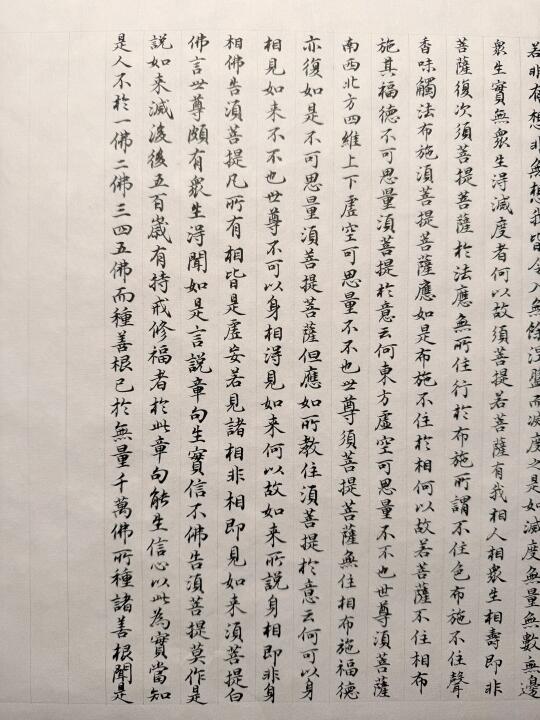 若非有想非無想我皆令入無餘涅盤而滅度之是如滅度無量無數無邊
衆生實無衆生得滅度者何以故須菩提若菩薩有我相人相衆生相壽即非
菩薩復次須菩提菩薩於法應無所住行於布施所謂不住色布施不住聲
香味觸法布施須菩提菩薩應如是布施不住於相何以故若菩薩不住相布
施其福德不可思量須菩提於意云何東方虛空可思量不不也世尊須菩薩
南西北方四維上下虛空可思量不不也世尊須菩提菩薩無住相布施福德
亦復如是不可思量須菩提菩薩但應如所教住須菩提於意云何可以身
相見如来不不也世尊不可以身相得見如来何以故如来所說身相即非身
相佛告須菩提凡所有相皆是虛妄若見諸相非相即見如来須菩提白
佛言世尊頗有衆生得聞如是言說章句生實信不佛告須菩提莫作是
說如来滅後後五百歲有持戒修福者於此章句能生信心以此為實當知
是人不於一佛二佛三四五佛而種善根已於無量千萬佛所種諸善根聞是